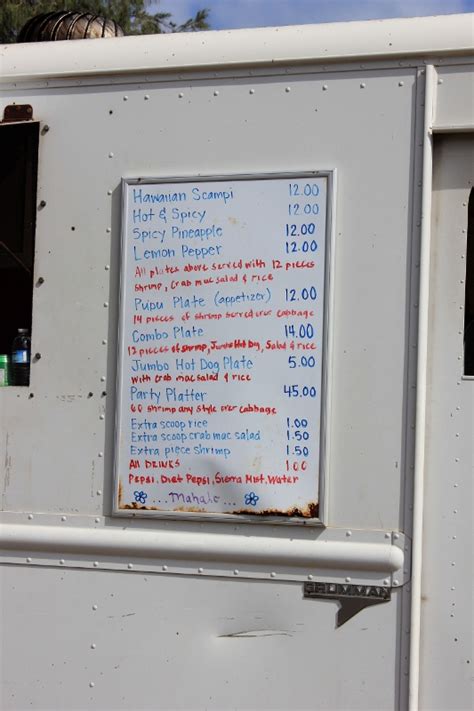 Hawaiian Scampi 12.00
Hot & Spicy 12.00
Spicy Pineapple 12.00
Lemon Pepper 12.00
All plates above served with 12 pieces
shrimp, crab mac salad & rice
Pupu Plate (appetizer) 12.00
14 pieces of shrimp served over cabbage
Combo Plate 14.00
12 pieces of shrimp, Jumbo Hot Dog, Salad & rice
Jumbo Hot Dog Plate 5.00
with crab mac salad & rice
Party Platter 45.00
60 shrimp any style over cabbage
Extra scoop rice 1.00
Extra scoop crab mac salad 1.50
Extra piece shrimp 1.50
All DRINKS 1.00
Pepsi, Diet Pepsi, Sierra Mist, Water
....Mahalo...
GRUMMAN